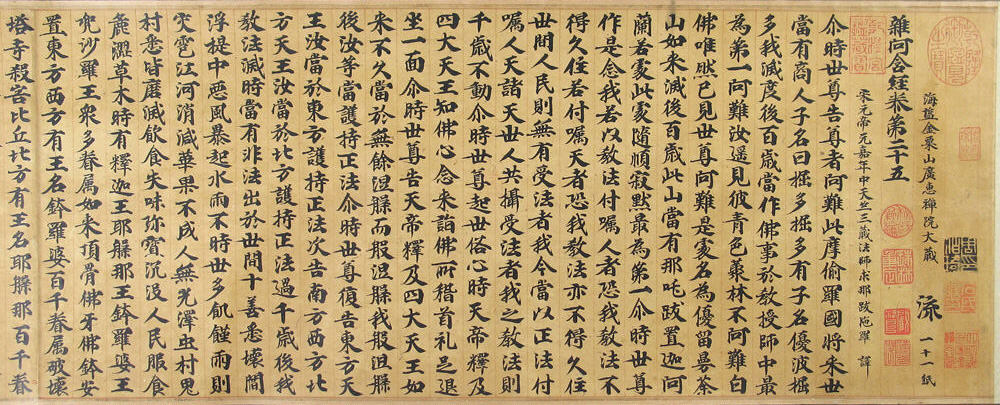 海鹽金粟山廣惠禪院大藏 流 一十一紙
雜阿含經卷第二十五
宋元帝元嘉年中天竺三藏法師求那跋陁羅 譯
尒時世尊告尊者阿難此摩偷羅國將来世
當有商人子名曰掘多掘多有子名優波掘
多我滅度後百歲當作佛事於教授師中最
為第一阿難汝遥見彼青色藂林不阿難白
佛唯然已見世尊阿難是處名為優留曼荼
山如来滅後百歲此山當有那吒跋置迦阿
蘭若處此處隨順寂默最為第一尒時世尊
作是念我若以教法付囑人者恐我教法不
得久住若付囑天者恐我教法亦不得久住
世間人民則無有受法者我今當以正法付
囑人天諸天世人共攝受法者我之教法則
千歲不動尒時世尊起世俗心時天帝釋及
四大天王知佛心念来詣佛所稽首礼足退
坐一面尒時世尊告天帝釋及四大天王如
来不久當於無餘涅槃而般涅槃我般涅槃
後汝等當護持正法尒時世尊復告東方天
王汝當於東方護持正法次告南方西方北
方天王汝當於北方護持正法過千歲後我
教法滅時當有非法出於世間十善悉壞閻
浮提中惡風暴起水雨不時世多飢饉雨則
灾雹江河消滅華果不成人無光澤虫村鬼
村悉皆磨滅飲食失味珍寶沉没人民服食
麁澀草木時有釋迦王耶槃那王鉢羅婆王
兜沙羅王衆多眷属如来頂骨佛牙佛鉢安
置東方西方有王名鉢羅婆百千眷属破壞
塔寺殺害比丘北方有王名耶槃那百千眷